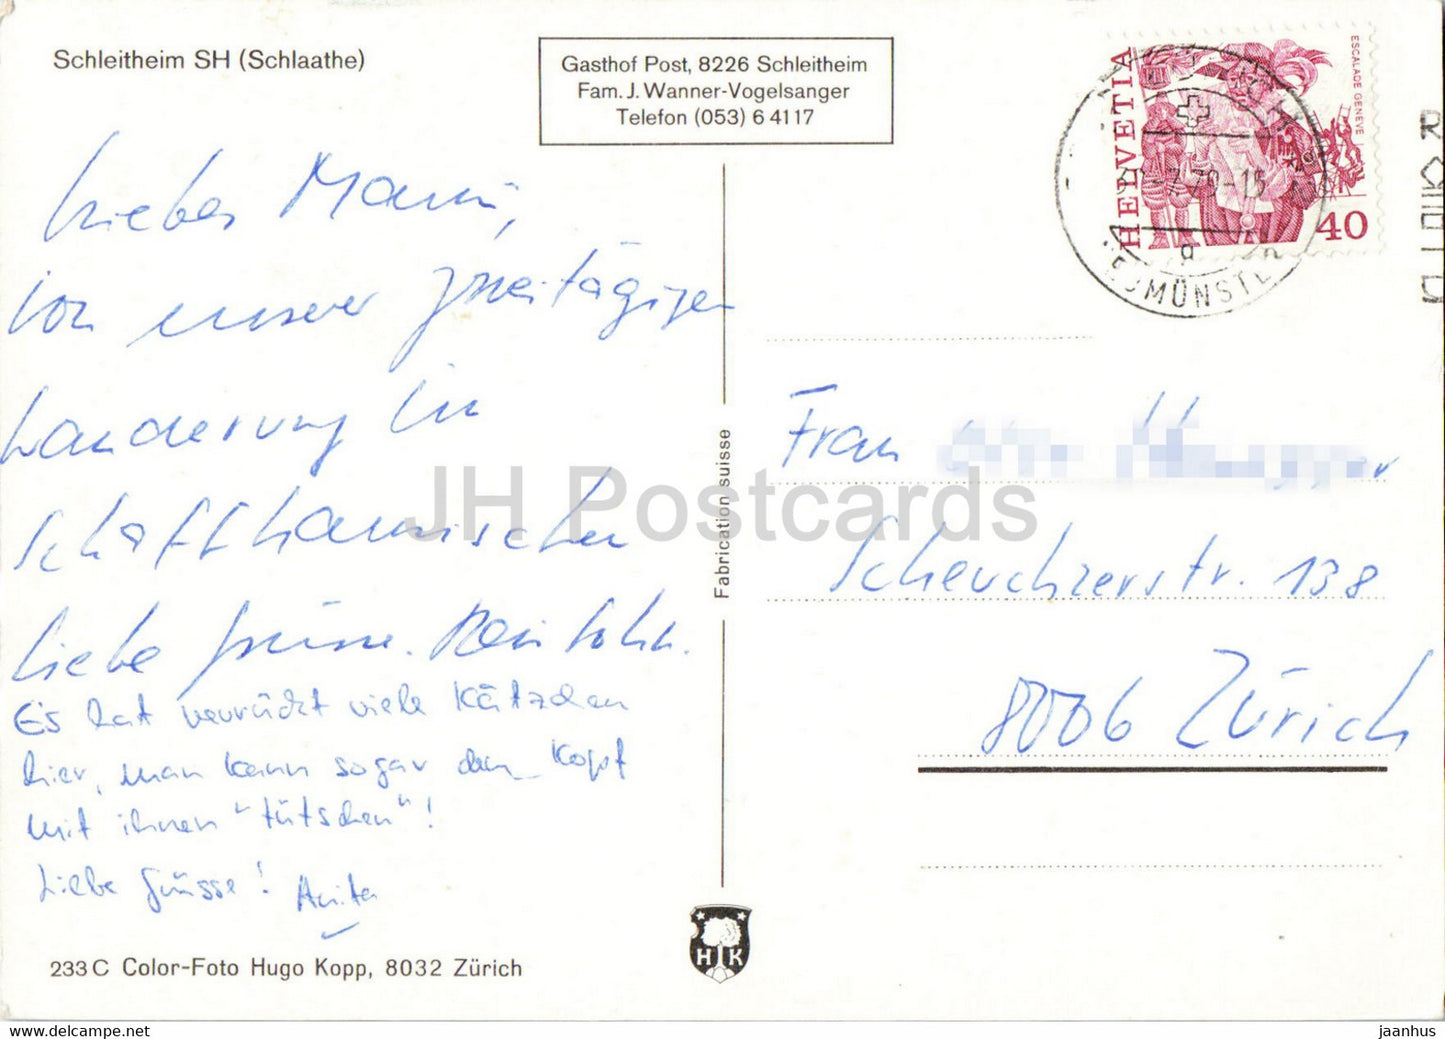 Schleitheim SH (Schlaathe)
Gasthof Post, 8226 Schleitheim
Fam. J. Wanner-Vogelsanger
Telefon (053) 6 41 17
HELVETIA
ESCALADE GENÈVE
40
Liebes Mami,
von unserer zweitägigen
Wanderung im
Schaffhausischen
liebe Grüsse.
Es hat verrückt viele Kätzchen
hier, man kann sogar den Kopf
mit ihnen "tütschen"!
Liebe Grüsse! Anita
Frau
Scheuchzerstr. 138
8006 Zürich
Fabrication suisse
H K
233 C Color-Foto Hugo Kopp, 8032 Zürich
JH Postcards
https://www.delcampe.net
jaanhus